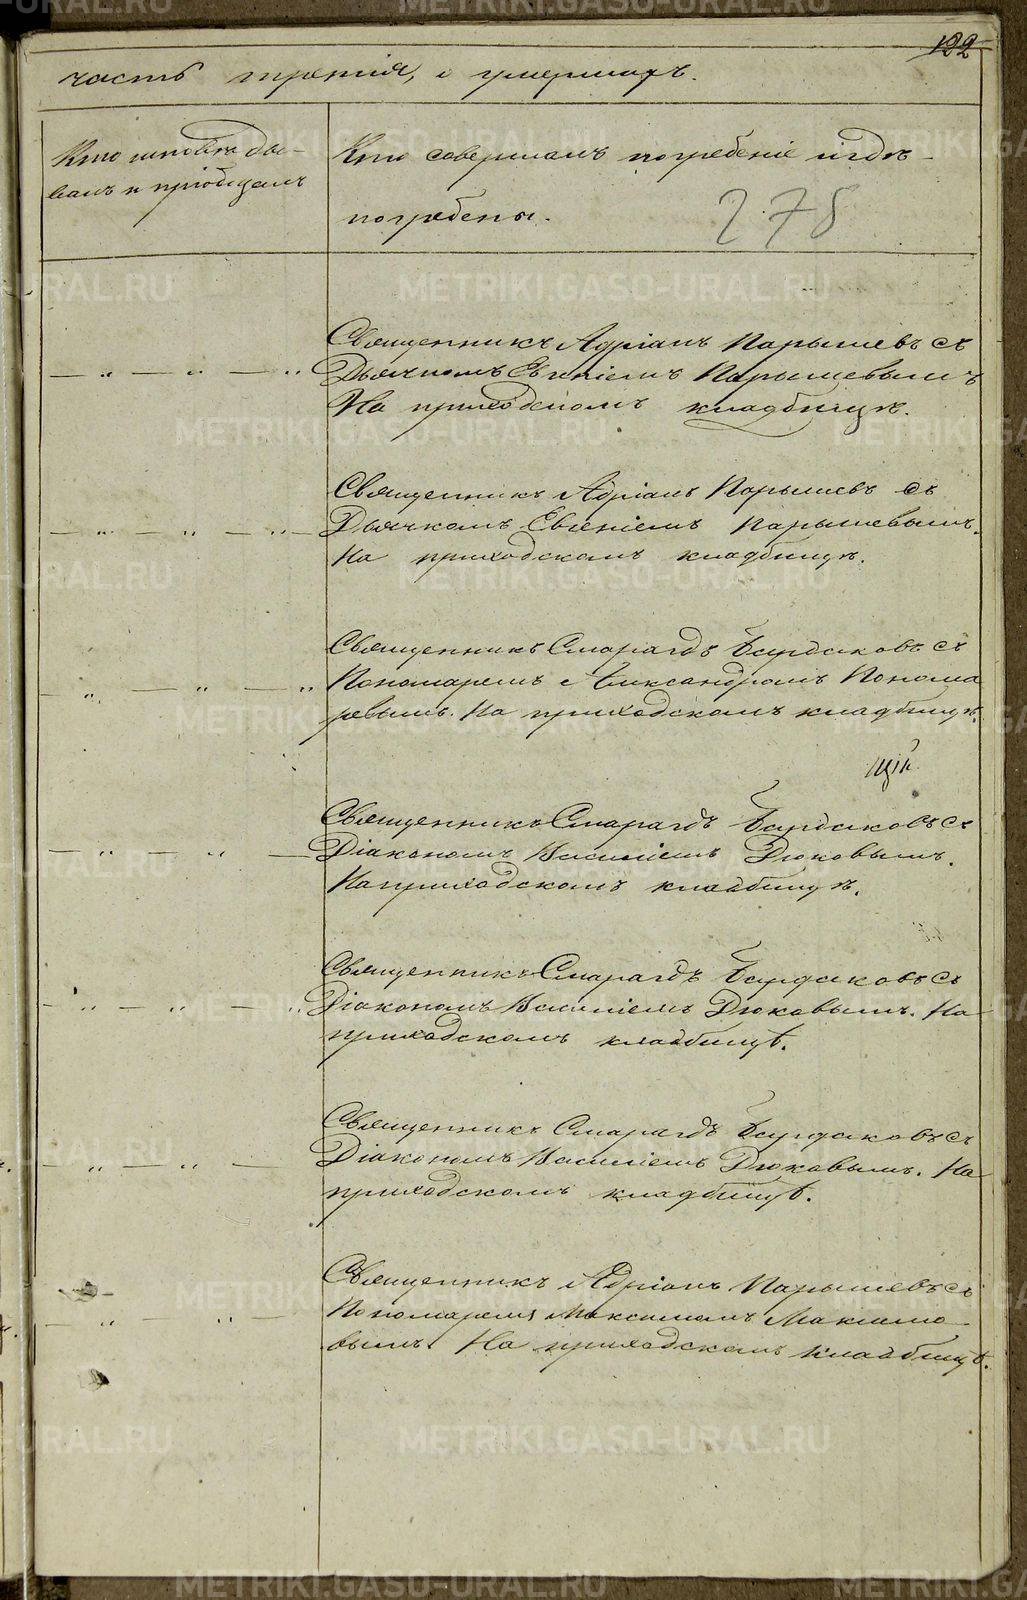 122
часть третія, о умершихъ.
Кто исповѣды-
валъ и пріобщалъ
Кто совершалъ погребеніе и гдѣ
погребены.
278
Священникъ Адріанъ Парышевъ съ
Дьячкомъ Евгеніемъ Парышевымъ
На приходскомъ кладбищѣ.
Священникъ Адріанъ Парышевъ съ
Дьячкомъ Евгеніемъ Парышевымъ.
На приходскомъ кладбищѣ.
Священникъ Смарагдъ Бурдаковъ съ
Пономаремъ Александромъ Понома
ревымъ. На приходскомъ кладбищѣ.
Священникъ Смарагдъ Бурдаковъ съ
Діакономъ Василіемъ Дюковымъ.
На приходскомъ кладбищѣ.
Священникъ Смарагдъ Бурдаковъ съ
Діакономъ Василіемъ Дюковымъ. На
приходскомъ кладбищѣ.
Священникъ Смарагдъ Бурдаковъ съ
Діакономъ Василіемъ Дюковымъ. На
приходскомъ кладбищѣ.
Священникъ Адріанъ Парышевъ съ
Пономаремъ Максимомъ Максимо
вымъ. На приходскомъ кладбищѣ.
METRIKI.GASO-URAL.RU